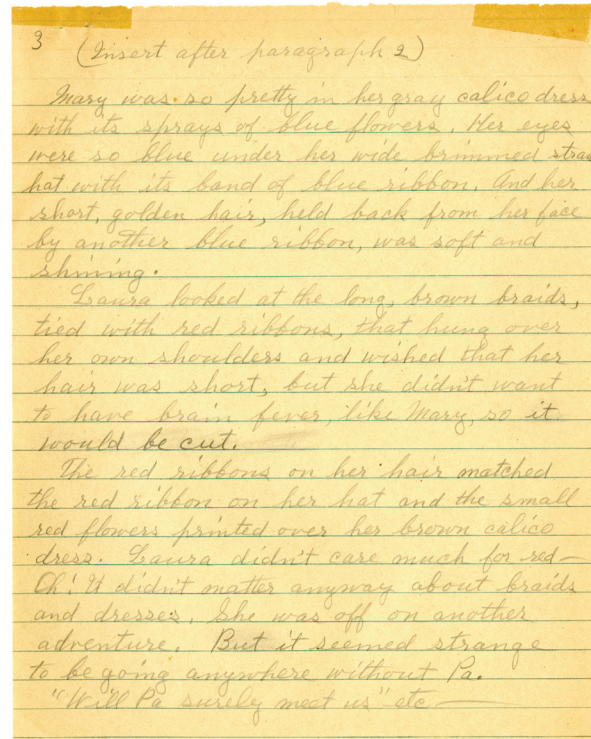 3 (Insert after paragraph 2)
Mary was so pretty in her gray calico dress
with its sprays of blue flowers. Her eyes
were so blue under her wide brimmed straw
hat with its band of blue ribbon. And her
short, golden hair, held back from her face
by another blue ribbon, was soft and
shining.
Laura looked at the long, brown braids,
tied with red ribbons, that hung over
her own shoulders and wished that her
hair was short, but she didn't want
to have brain fever, like Mary, so it
would be cut.
The red ribbons on her hair matched
the red ribbon on her hat and the small
red flowers printed over her brown calico
dress. Laura didn't care much for red—
Oh! It didn't matter anyway about braids
and dresses. She was off on another
adventure. But it seemed strange
to be going anywhere without Pa.
"Will Pa surely meet us" etc —